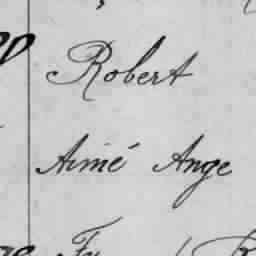 Robert
Aimé Ange